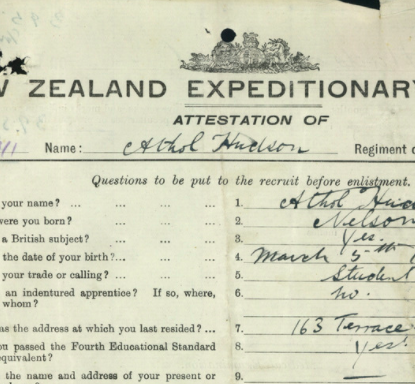 W ZEALAND EXPEDITIONARY
ATTESTATION OF
Name: Athol Hudson Regiment o
Questions to be put to the recruit before enlistment.
your name? ... ... ... 1. Athol Hud
were you born? ... ... 2. Nelson
a British subject? ... ... ... 3. Yes.
the date of your birth? ... ... 4. March 5th
your trade or calling? ... ... 5. Student
an indentured apprentice? If so, where, 6. no.
whom?
as the address at which you last resided? ... 7. 163 Terrace
ou passed the Fourth Educational Standard 8. Yes.
equivalent?
the name and address of your present or 9. —